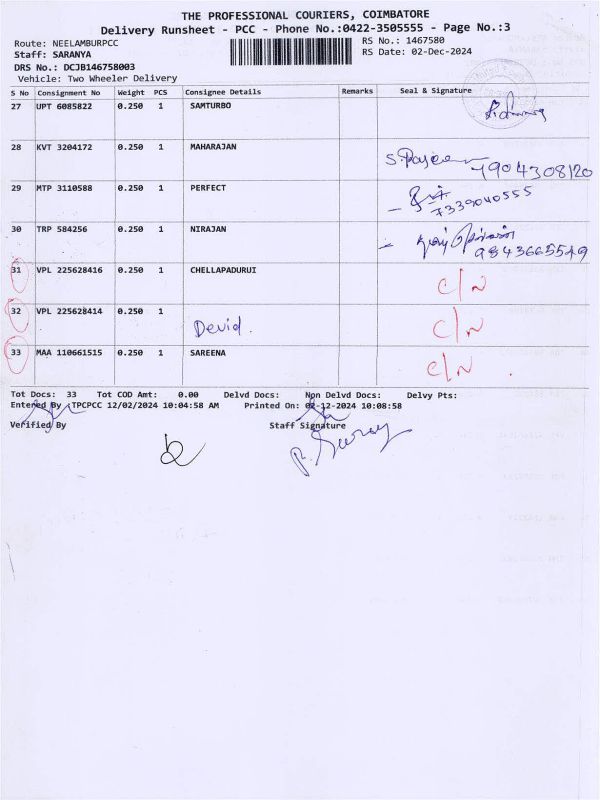 THE PROFESSIONAL COURIERS, COIMBATORE
Delivery Runsheet - PCC - Phone No.:0422-3505555 - Page No.:3
Route: NEELAMBURPCC
RS No.: 1467580
Staff: SARANYA
RS Date: 02-Dec-2024
DRS No.: DCJB146758003
Vehicle: Two Wheeler Delivery
S No Consignment No Weight PCS Consignee Details Remarks Seal & Signature
27 UPT 6085822 0.250 1 SAMTURBO
28 KVT 3204172 0.250 1 MAHARAJAN
7904308120
29 MTP 3110588 0.250 1 PERFECT
7339040555
30 TRP 584256 0.250 1 NIRAJAN
9843665549
31 VPL 225628416 0.250 1 CHELLAPADURUI C/N
32 VPL 225628414 0.250 1 Devid. C/N
33 MAA 110661515 0.250 1 SAREENA C/N
Tot Docs: 33 Tot COD Amt: 0.00 Delvd Docs: Non Delvd Docs: Delvy Pts:
Entered By : TPCPCC 12/02/2024 10:04:58 AM Printed On: 02-12-2024 10:08:58
Verified By Staff Signature